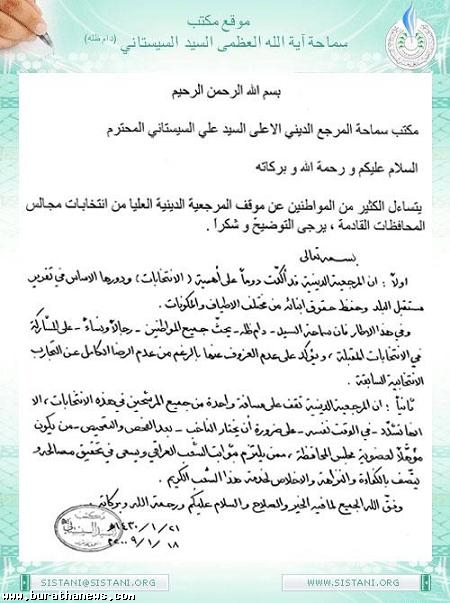 موقع مكتب
سماحة آية الله العظمى السيد السيستاني (دام ظله)
بسم الله الرحمن الرحيم
مكتب سماحة المرجع الديني الاعلى السيد علي السيستاني المحترم
السلام عليكم و رحمة الله و بركاته
يتساءل الكثير من المواطنين عن موقف المرجعية الدينية العليا من انتخابات مجالس
المحافظات القادمة ، يرجى التوضيح و شكراً .
بسمه تعالى
اولاً : ان المرجعية الدينية قد أكّدت دوماً على أهمية (الانتخابات) ودورها الاساس في تقرير
مستقبل البلد وحفظ حقوق ابنائه من مختلف الاطياف والمكونات .
وفي هذا الاطار فان سماحة السيد - دام ظله - يحثّ جميع المواطنين - رجالاً ونساءً - على المشاركة
في الانتخابات المقبلة ، ويؤكد على عدم العزوف عنها بالرغم من عدم الرضا الكامل عن التجارب
الانتخابية السابقة .
ثانياً : ان المرجعية الدينية تقف على مسافة واحدة من جميع المرشحين في هذه الانتخابات ، الا
انها تشدّد - في الوقت نفسه - على ضرورة أن يختار الناخب - بعد الفحص والتمحيص - من يكون
مؤهلاً لعضوية مجلس المحافظة ، ممن يلتزم بثوابت الشعب العراقي ويسعى في تحقيق مصالحه و
يتصف بالكفاءة والنزاهة والاخلاص لخدمة هذا الشعب الكريم .
وفق الله الجميع لما فيه الخير والصلاح والسلام عليكم ورحمة الله وبركاته
١٤٣٠/١/٢١هـ
٢٠٠٩/١/١٨
مكتب
السيد السيستاني
SISTANI@SISTANI.ORG
WWW.SISTANI.ORG
www.burathanews.com